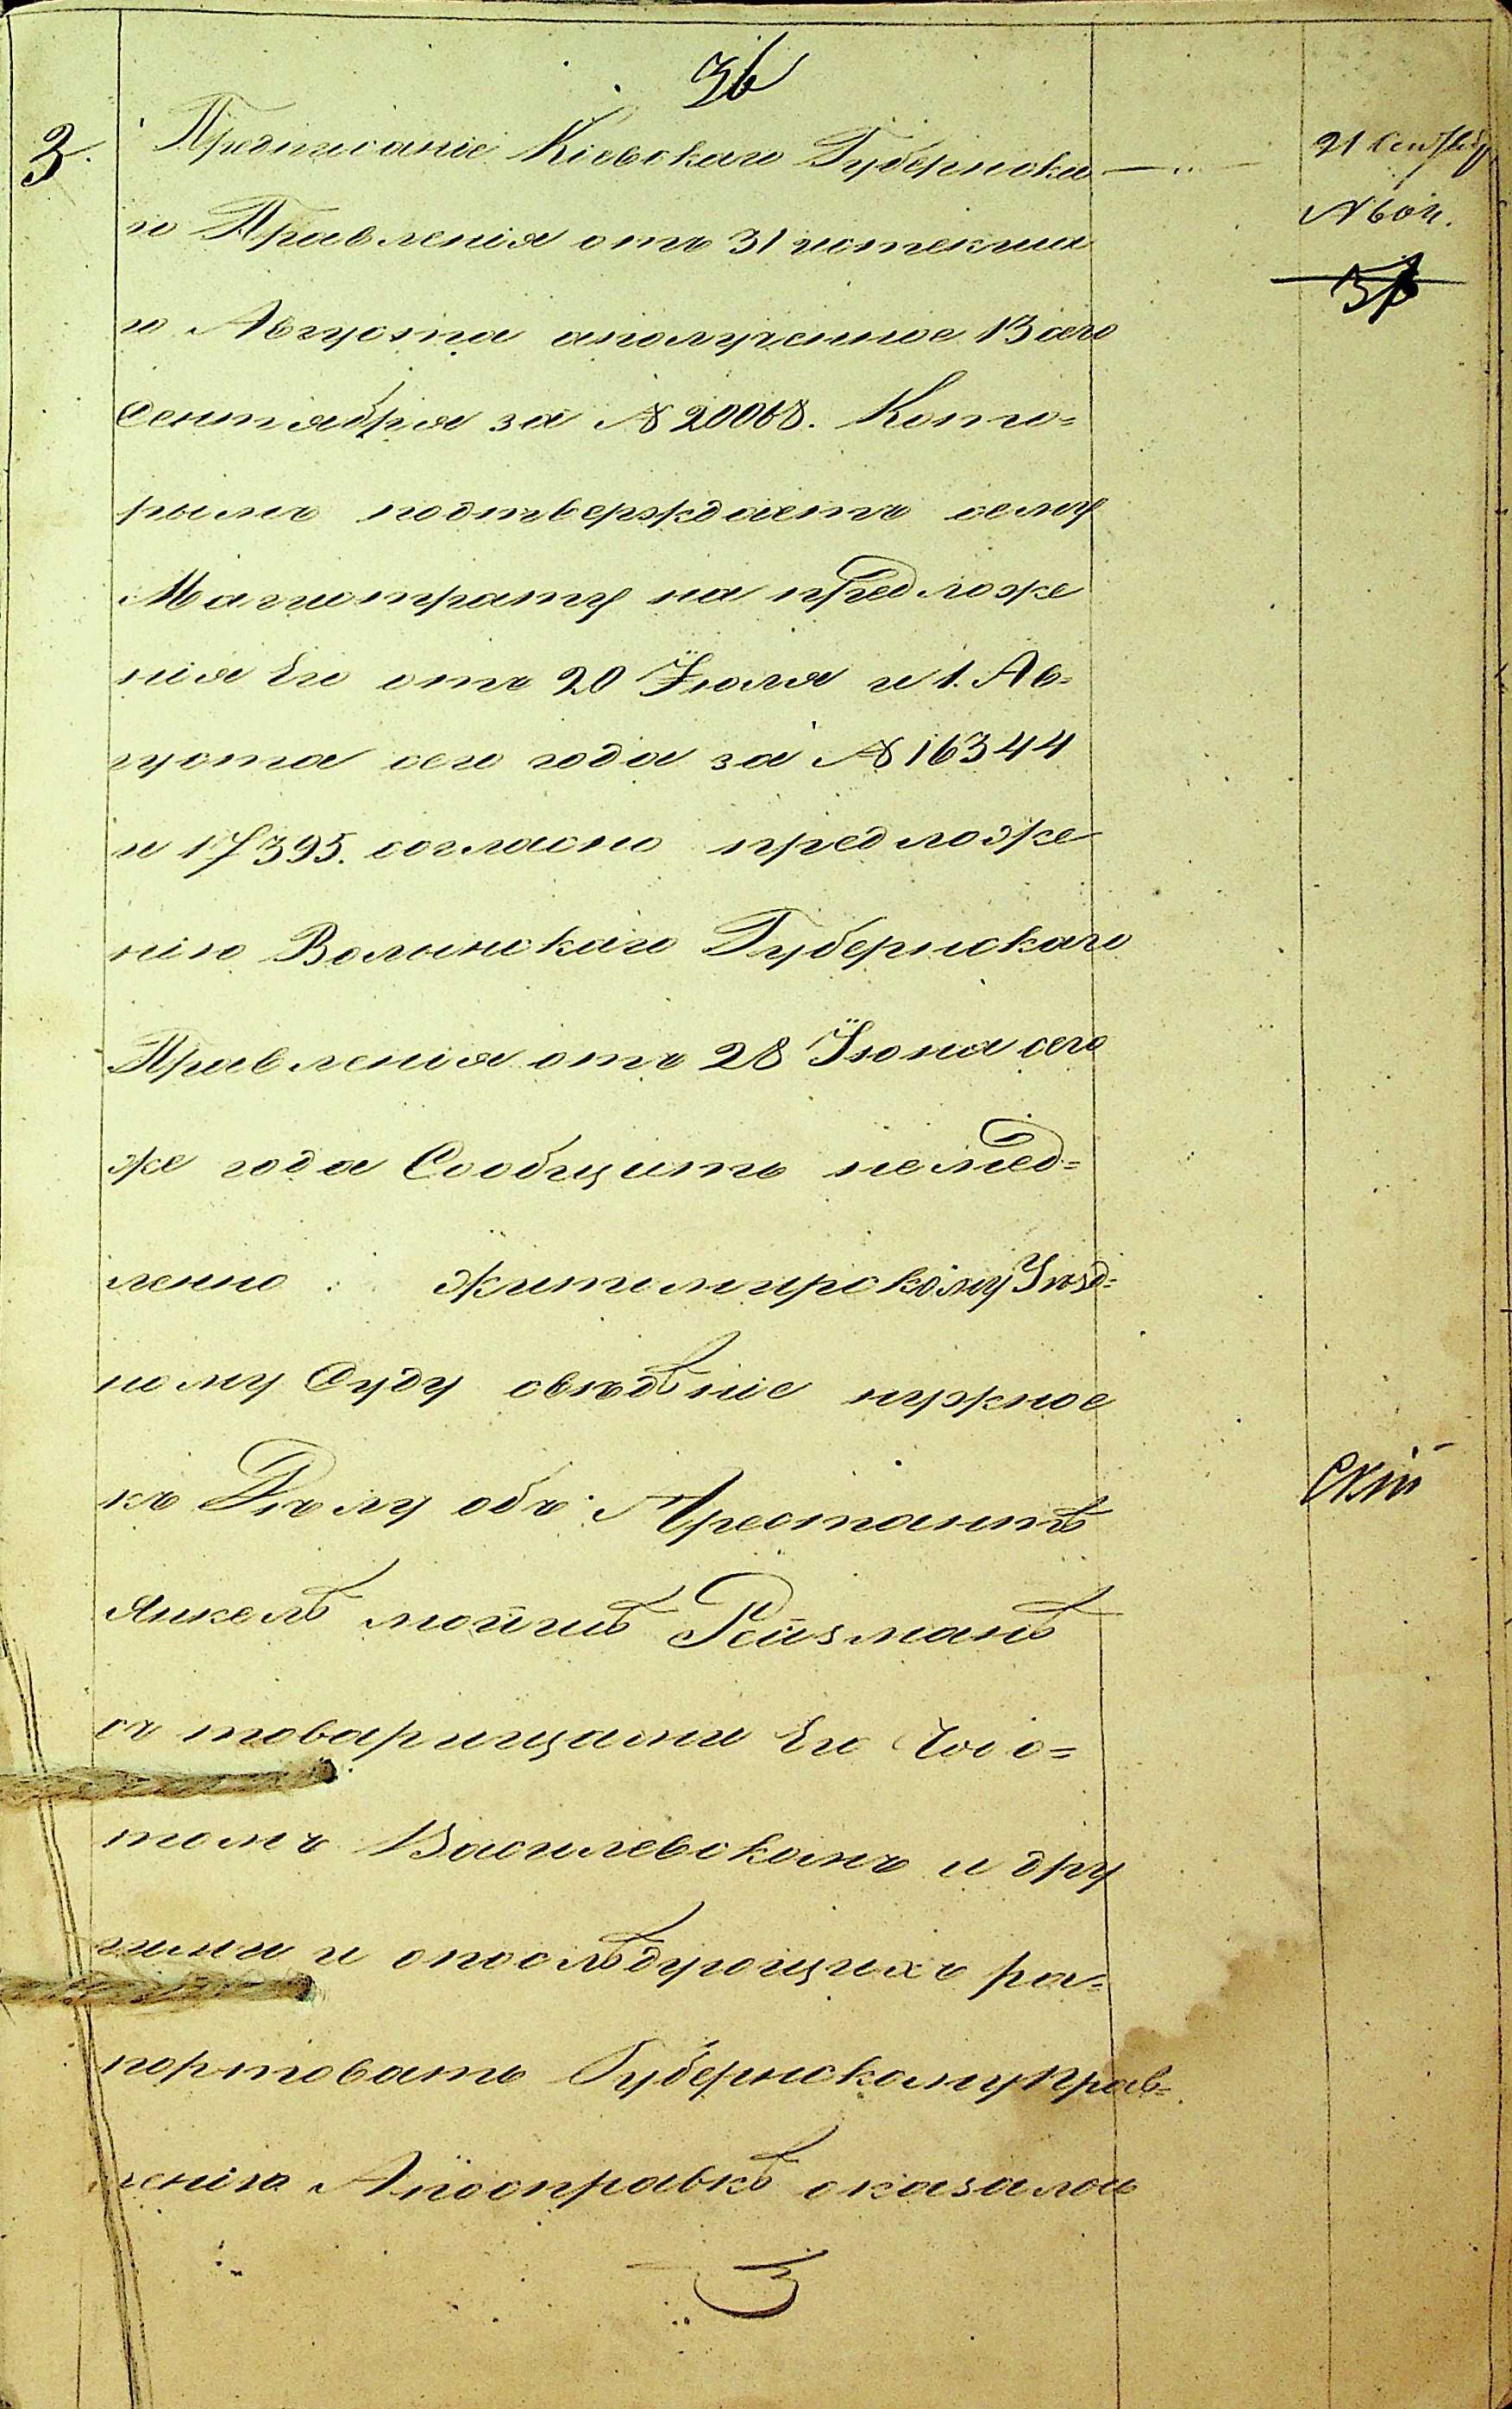 36
3.
Предписаніе Кіевскаго Губернска
го Правленія отъ 31 истекша
го Августа а полученное 13 сего
Сентября за № 20068. Кото=
рымъ подтверждаетъ сему
Магистрату на предложе
нія Его отъ 20 Іюля и 1. Ав=
густа сего года за № 16344
и 17395. согласно предложе
нію Волынскаго Губернскаго
Правленія отъ 28 Іюня сего
же года Сообщить немед=
ленно Житомирскому Уѣзд=
ному Суду свѣдѣніе нужное
къ Дѣлу объ Арестантѣ
Янкелѣ Рейзманѣ
съ товарищами Его
Василевскимъ и дру
гими и опослѣдующихъ ра=
портовать Губернскому Прав=
ленію. А поправкѣ оказалось
21 Сентяб
№